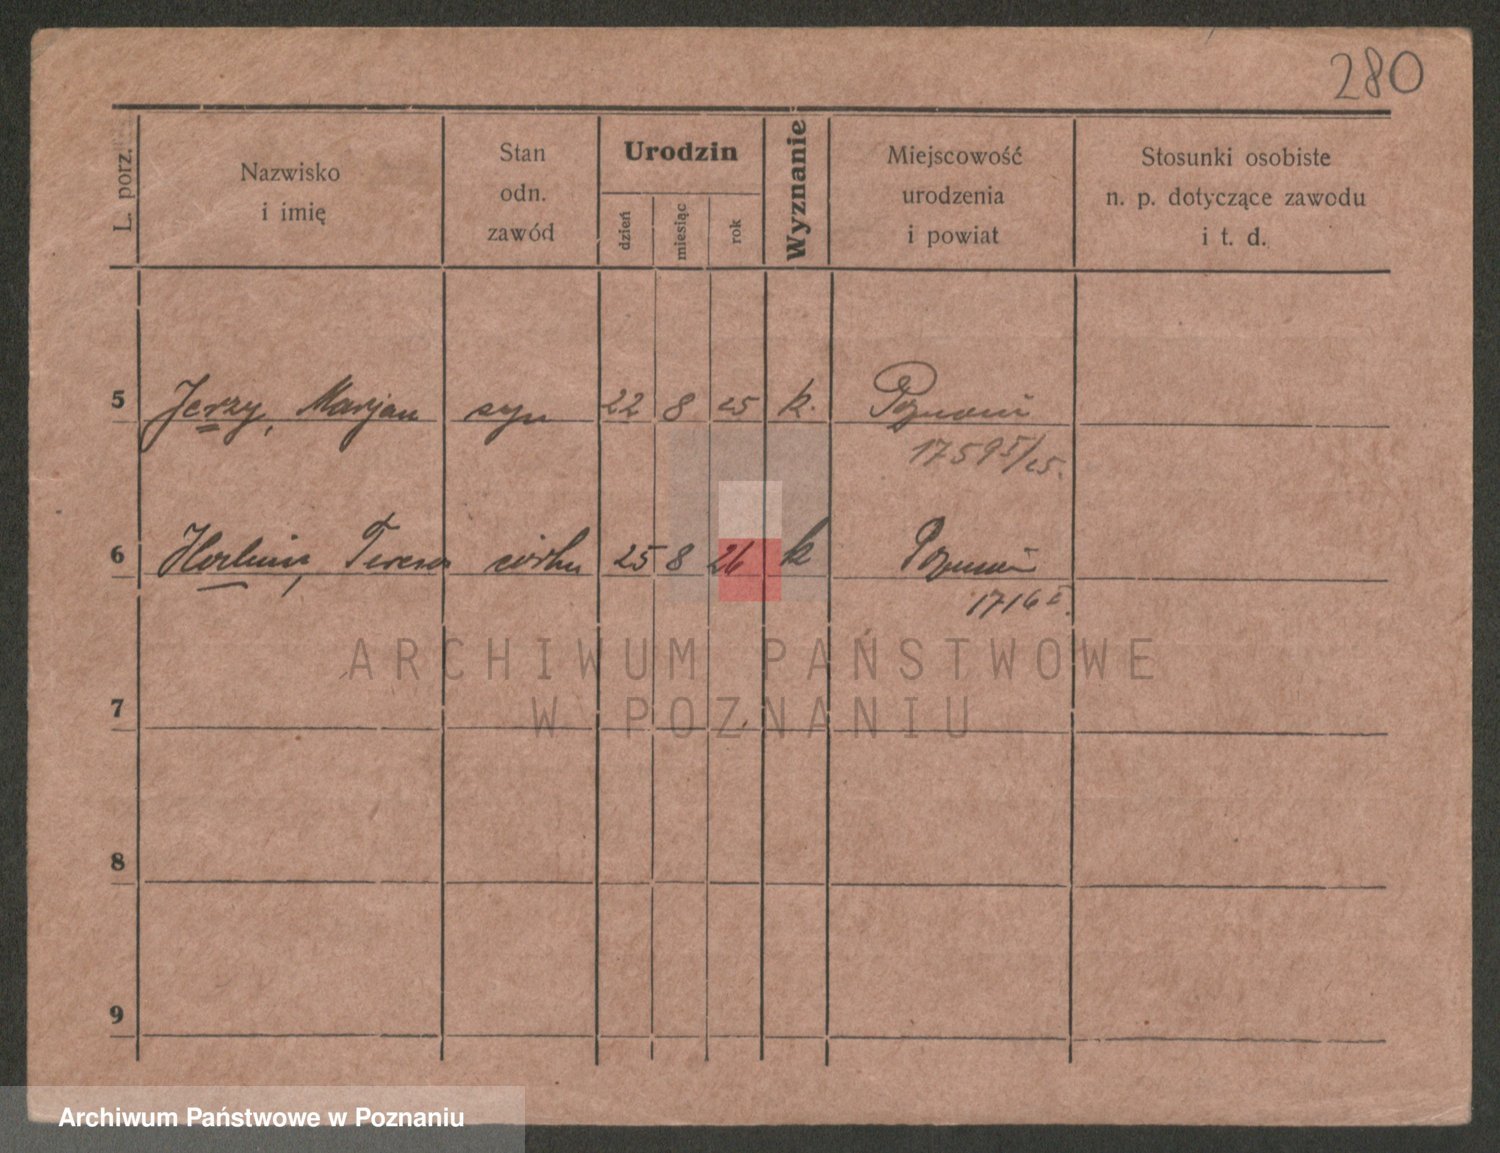 280
L. porz.
Nazwisko
i imię
Stan
odn.
zawód
Urodzin
dzień
miesiąc
rok
Wyznanie
Miejscowość
urodzenia
i powiat
Stosunki osobiste
n. p. dotyczące zawodu
i t. d.
5 Jerzy, Marjan syn 22 8 25 k. Poznań
1759 I/25.
6 Teresa córka 25 8 26 k Poznań
1716 I.
ARCHIWUM PAŃSTWOWE
W POZNANIU
7
8
9
Archiwum Państwowe w Poznaniu